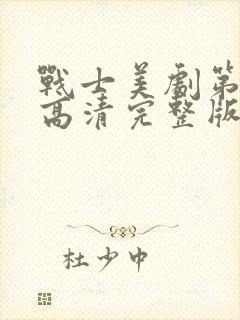 戰士美劇第
高清完整版
杜少中